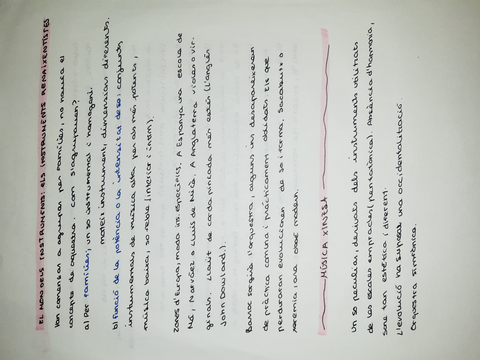 EL MÓN DELS INSTRUMENTS: ELS INSTRUMENTS RENAIXENTISTES
Ian comencen a agrupar per famílies, no nauxea el
concepte de orquestra. com s'agrupaven?
a) Per famílies; un so instrumental i homogeni.
mateix instrument, dimensions diferents.
b) Funció de la potència o la intensitat de so: conjunts
instrumentals de música alta, per als més potents,
música baixa, so feble (interior i íntim).
zones d'Europa, modo ios específics. A Espanya una escola de
Mú, Narváez o Lluís de Milà. A Anglaterra violes o vir-
ginals. Llaüt de corda pinçada més estès (L'anglès
John Dowland).
Barroc sorgeix l'orquestra, alguns ins desapareixeran
de pràctica comuna i pràcticament oblidats. Els que
perduraran evolucionen de so i forma. Sacabutx o
xeremia ara oboè modern.
MÚSICA XINESA
Un so peculiar, derivats dels instruments utilitzats i
de les escales emprades (pentatònica). Absència d'harmonia,
sona tan estètica i diferent.
L'evolució ha suposat una occidentalització.
Orquestra Simfònica.